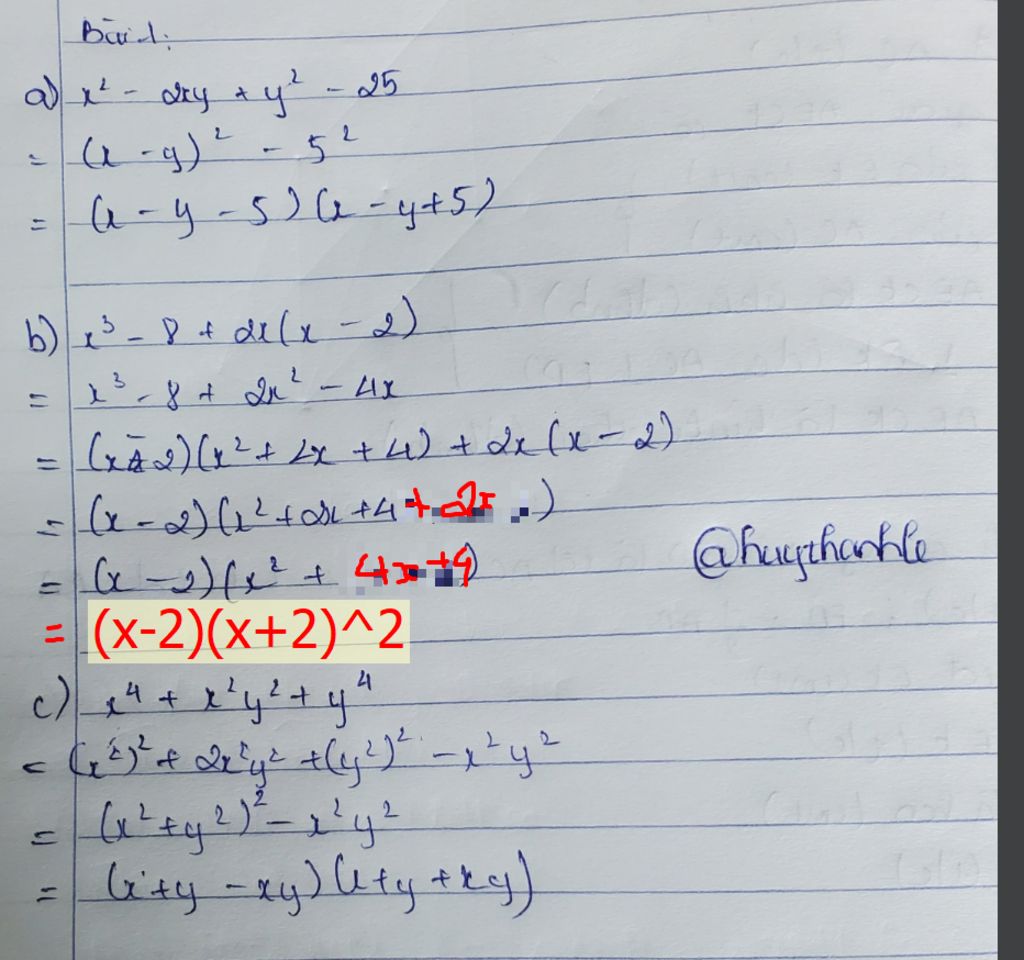 Bài 1:
a) x² - 2xy + y² - 25
= (x - y)² - 5²
= (x - y - 5)(x - y + 5)
b) x³ - 8 + 2x(x - 2)
= x³ - 8 + 2x² - 4x
= (x - 2)(x² + 2x + 4) + 2x(x - 2)
= (x - 2)(x² + 2x + 4 + 2x)
= (x - 2)(x² + 4x + 4)
@huythanhle
= (x-2)(x+2)^2
c) x⁴ + x²y² + y⁴
= (x²)² + 2x²y² + (y²)² - x²y²
= (x² + y²)² - x²y²
= (x + y - xy)(x + y + xy)